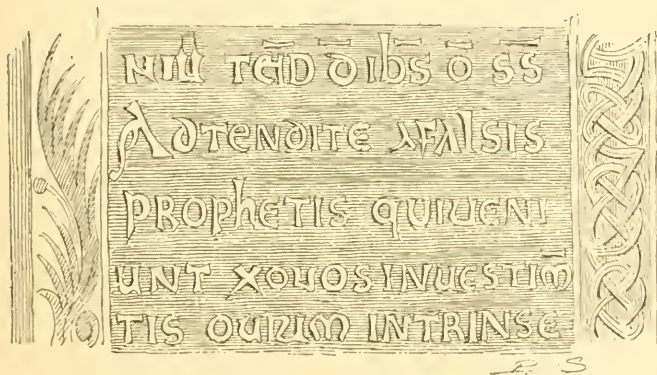 NIŪ D̄ IB̄S Ō S̄S̄
ADTENDITE AFALSIS
PROPhETIS QUIUENI
UNT ADUOSINUESTIM̄
TIS OUIUM INTRINSE
P. S